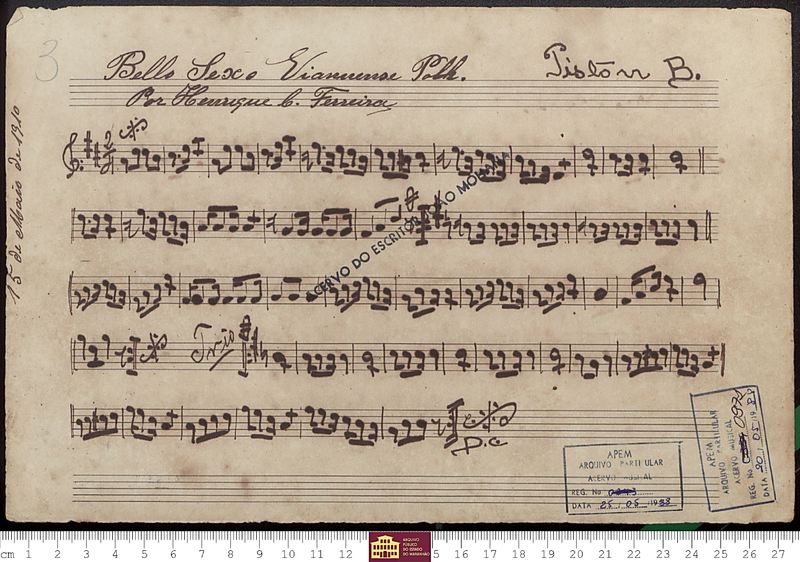 3
Bello Sexo Viannense Polk.
Pistōn B.
Por Henrique C. Ferreira
15 de Maio de 1910
2
ACERVO DO ESCRITOR
Trio
D.C
APEM
ARQUIVO PARTICULAR
ACERVO MUSICAL
REG. No
DATA 25 / 05 / 1988
APEM
ARQUIVO PARTICULAR
ACERVO MUSICAL
REG. No
DATA 20 / 05 / 19
cm 1 2 3 4 5 6 7 8 9 10 11 12 5 16 17 18 19 20 21 22 23 24 25 26 27
ARQUIVO
PÚBLICO
DO ESTADO
DO MARANHÃO